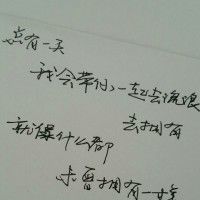 总有一天
我会带你一起去流浪
去拥有
就像什么都
未曾拥有一样